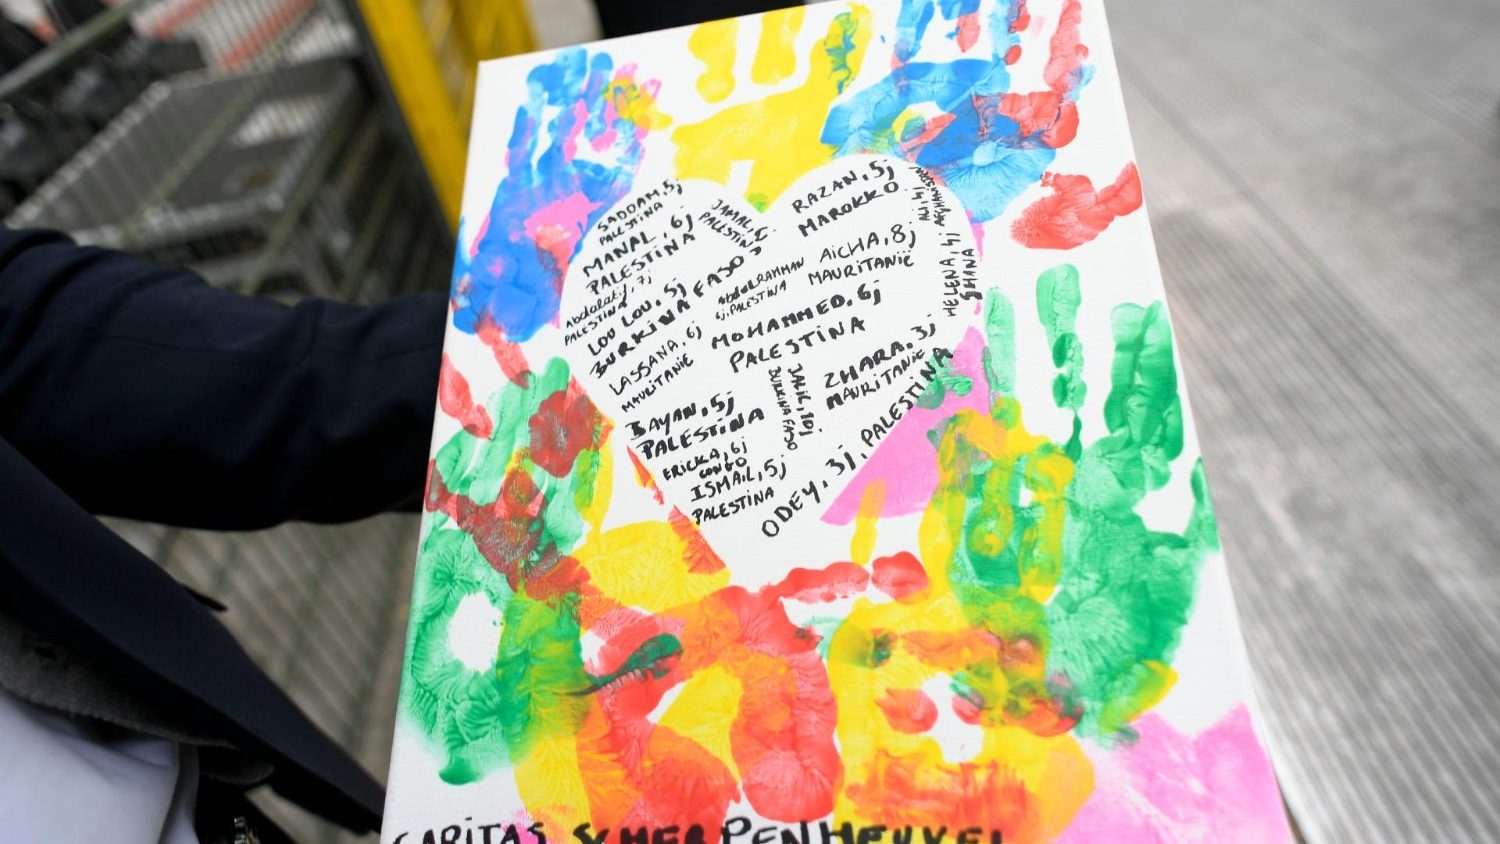 SADDAM, 5j
PALESTINA
MANAL, 6j
PALESTINA
JAMAL, 6j
PALESTINA
RAZAN, 5j
MAROKKO
ALI, 4j
AFGHANISTAN
HELENA 4j
GHANA
Abdalatif, 7j
PALESTINA
LOU LOU, 5j
BURKINA FASO
AbdulRAHMAN
6j, PALESTINA
AiCHA, 8j
MAURITANIË
LASSANA, 6j
MAURITANIË
MOHAMMED, 6j
PALESTINA
ZHARA, 3j
MAURITANIË
BAYAN, 5j
PALESTINA
JALIL, 10j
BURKINA FASO
ERICKA, 6j
CONGO
ISMAiL, 5j
PALESTINA
ODEY, 3j, PALESTINA
CARITAS SCHERPENHEUVEL